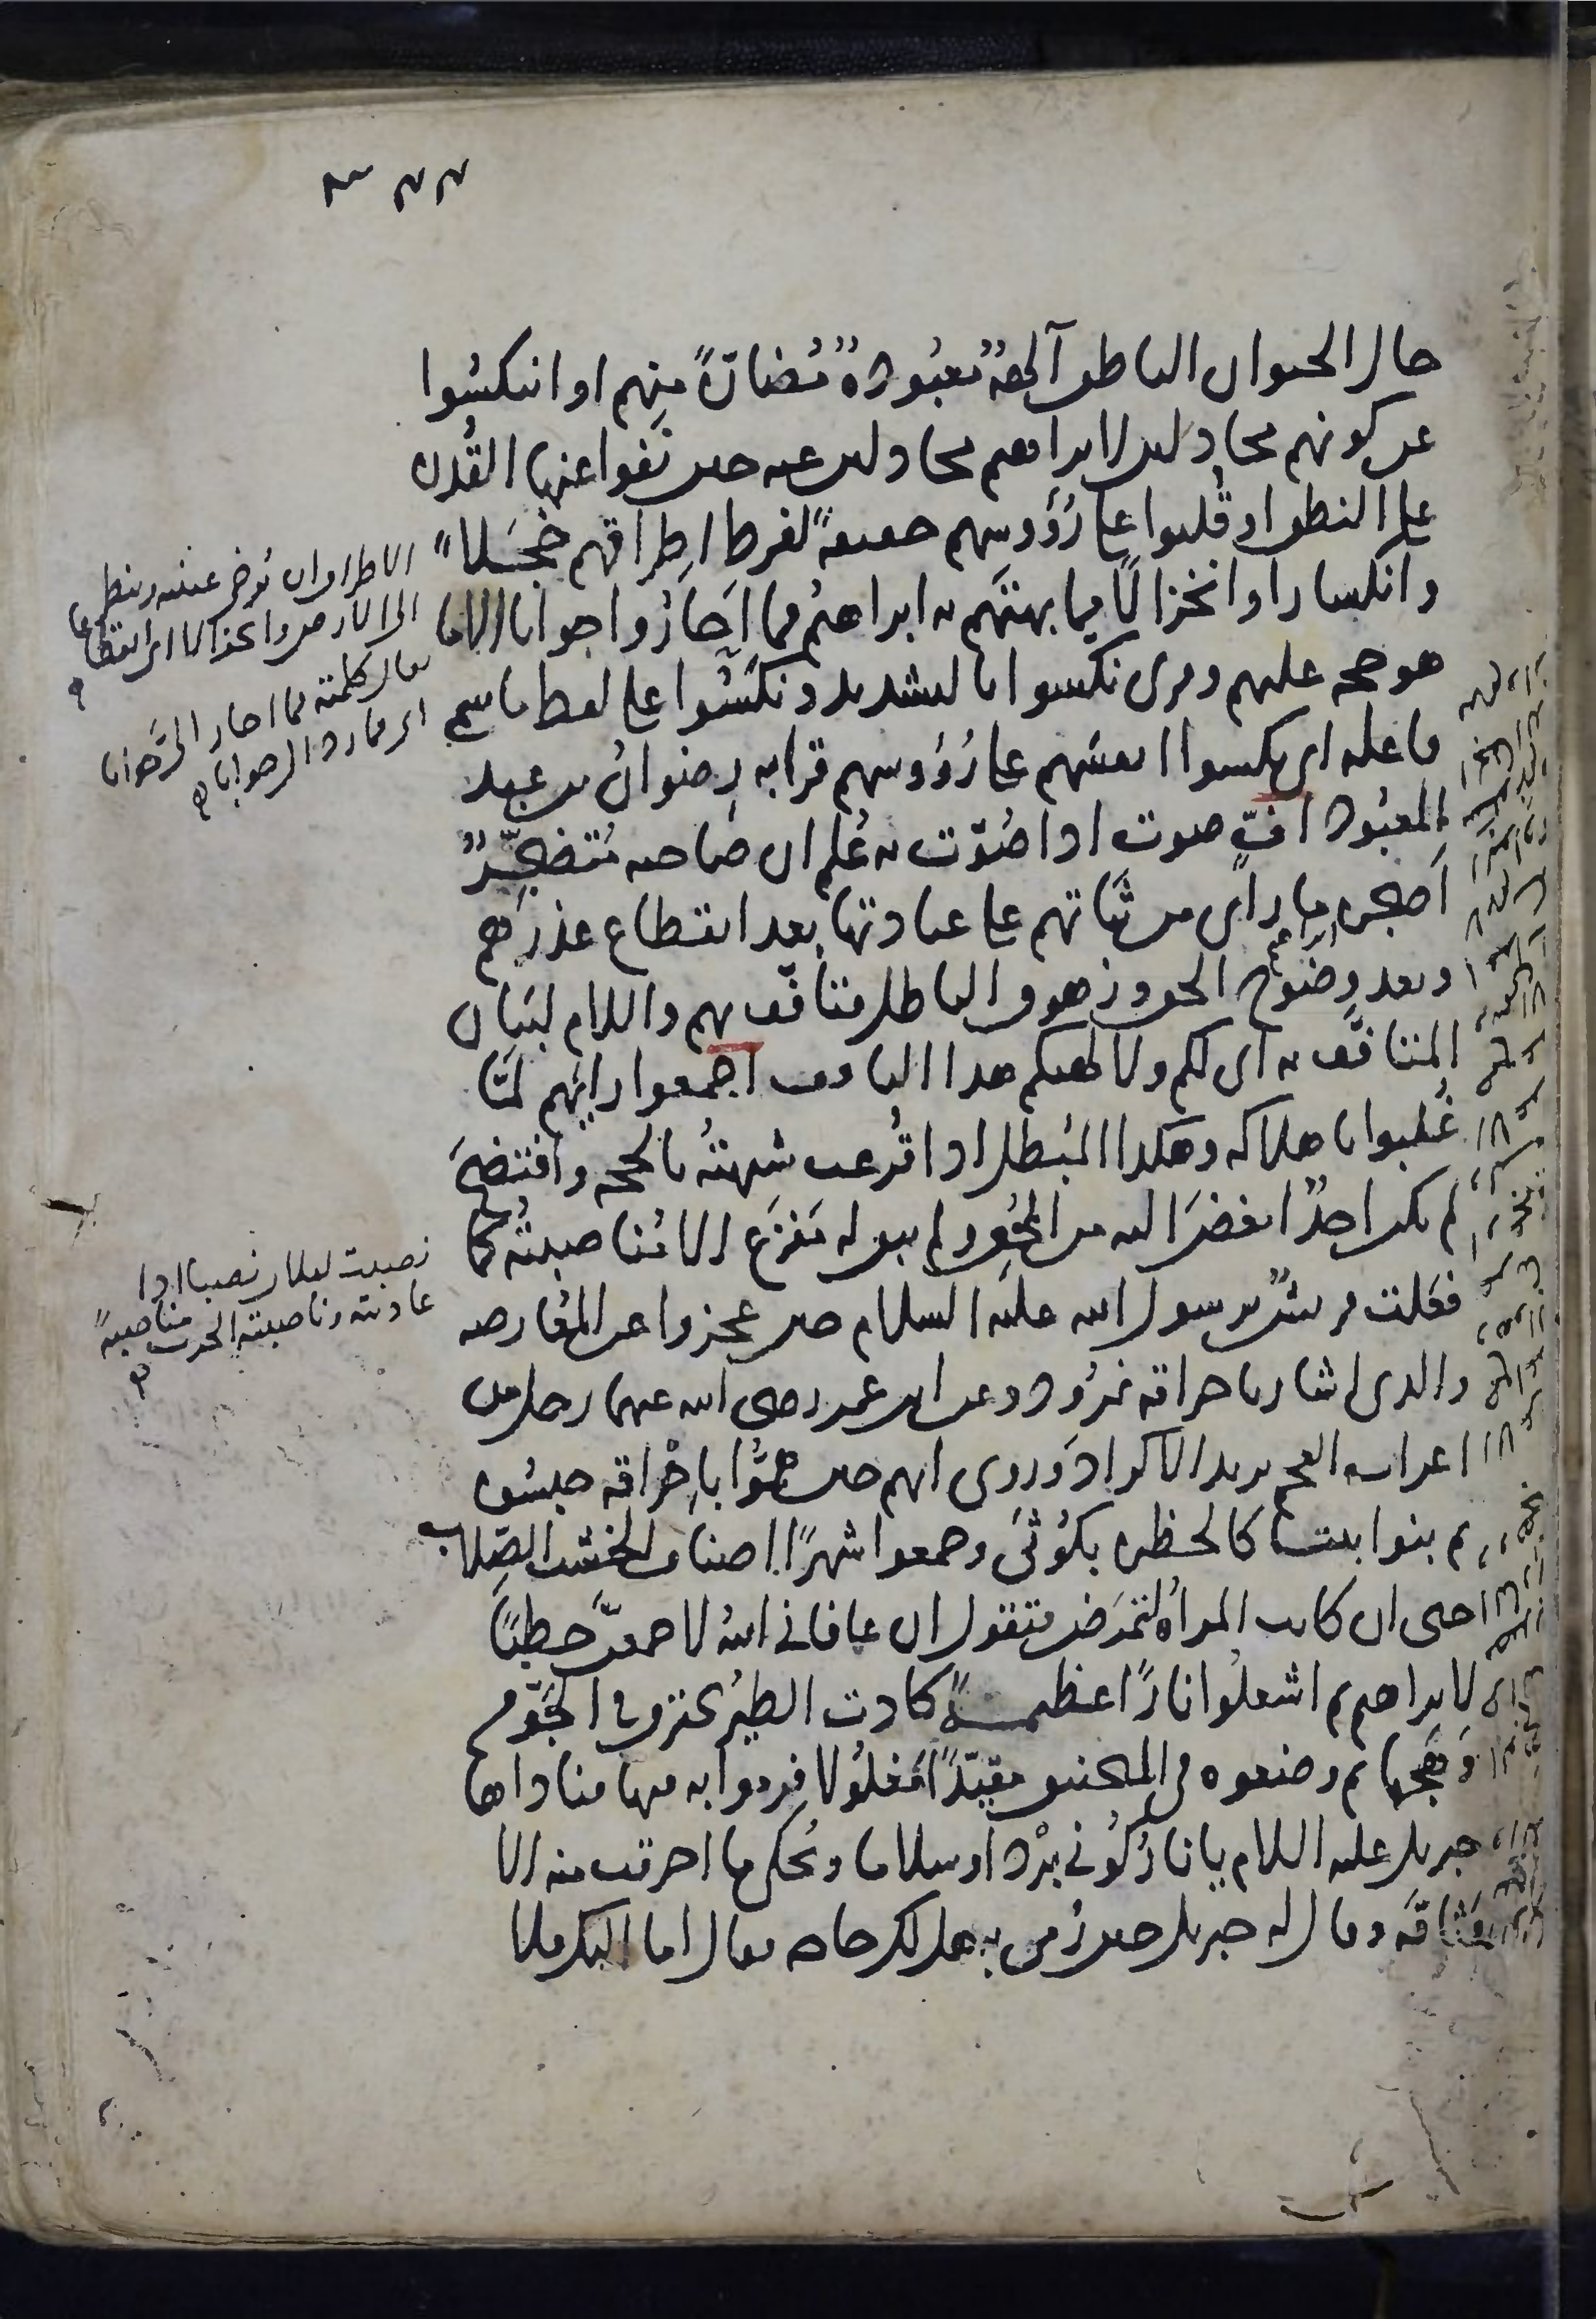 حال الحيوان الناطق آلهة معبودة مضارّة منهم او انتكسوا
عن كونهم مجادلين لابراهيم مجادلين عنه حين نفوا عنها القدرة
على النطق او قلبوا على رؤوسهم حقيقة لفرط اطراقهم خجلا
وانكسارا وانخزالا مما بهتهم به ابراهيم فما احاروا جوابا الا ما
هو حجه عليهم وقرئ نكسوا بالتشديد ونكسوا على لفظ ما سمي
فاعله اي نكسوا انفسهم على رؤوسهم قرا به رضوان بن عبد
المعبود اف صوت اذا صوّت به علم ان صاحبه متضجّر
اضجره ما راى من ثباتهم على عبادتها بعد انقطاع عذرهم
وبعد وضوح الحق وزهوق الباطل فتافّف بهم واللام لبيان
المتافّف به اي لكم ولالهتكم هذا التافف اجمعوا رايهم لمّا
غلبوا باهلاكه وهكذا المبطل اذا قرعت شبهته بالحجه وافتضح
لم يكن احد ابغض اليه من المحق ولم يبق له مفزع الا مناصبته كما
فعلت قريش برسول الله عليه السلام حين عجزوا عن المعارضه
والذي اشار باحراقه نمرود وعن ابن عمر رضي الله عنهما رجل من
اعراب العجم يريد الاكراد وروي انهم حين همّوا باحراقه حبسوه
ثم بنوا بيتا كالحظيره بكوثى وجمعوا شهرًا اصناف الخشب الصلاب
حتى ان كانت المراة لتمرض فتقول ان عافاني الله لاجمعنّ حطبًا
لابراهيم ثم اشعلوا نارًا عظيمة كادت الطير تحترق في الجوّ من
وهجها ثم وضعوه في المنجنيق مقيدًا مغلولا فرموا به فيها فناداها
جبريل عليه السلام يا نار كوني بردا وسلاما ويحكى ما احرقت منه الا
وثاقه وقال له جبريل حين رمي به هل لك حاجه فقال اما اليك فلا
الاطراق ان يُرخي عينيه وينظر
الى الارض وانخزالا اي انقطاعا
يقال كلمته فما احار اليّ جوابا
اي ما رد الي جوابا
نصبت لفلان نصبا اذا
عاديته وناصبته الحرب مناصبةً